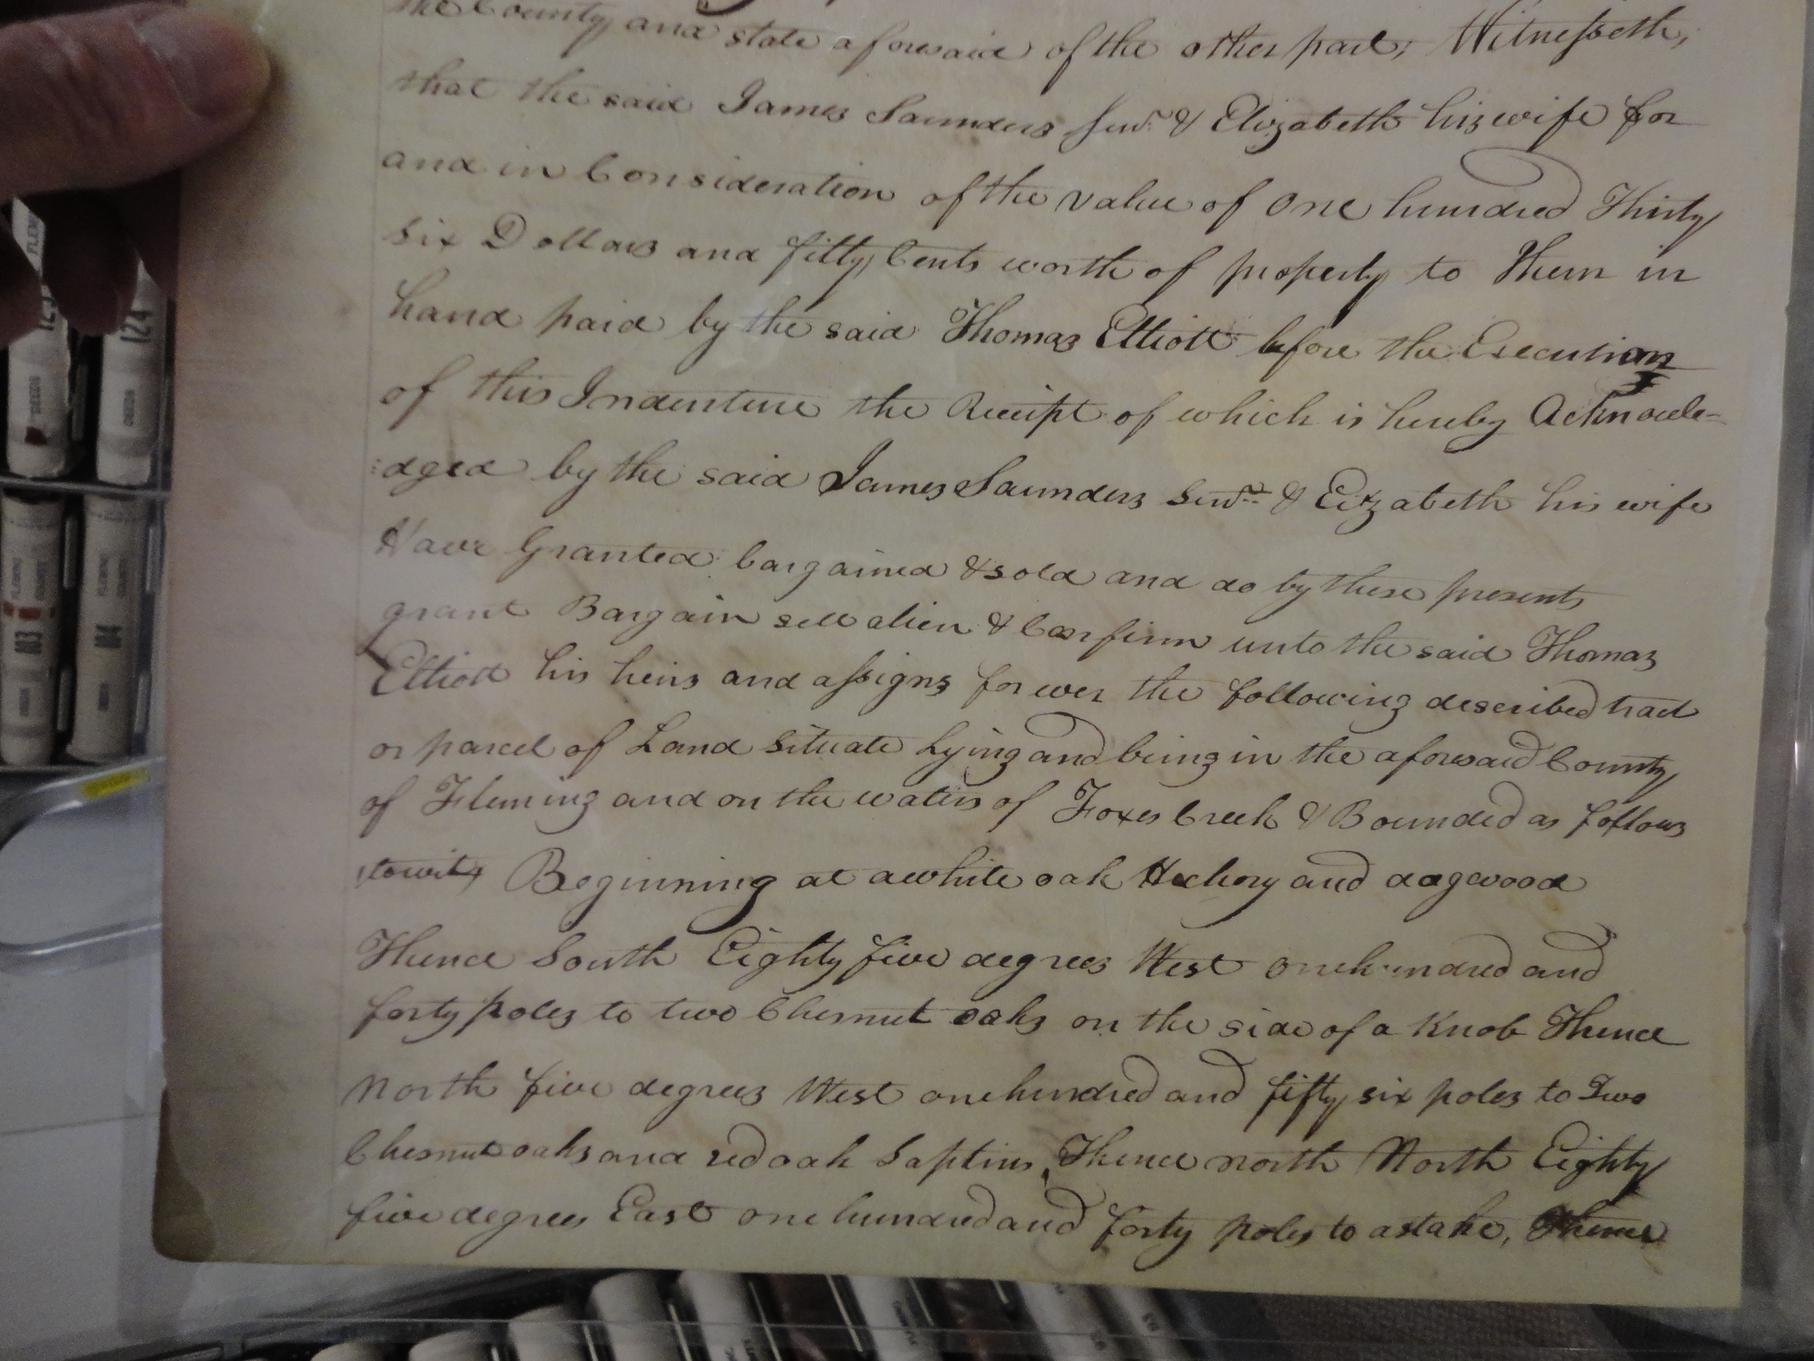 the County and state aforesaid of the other part, Witnesseth,
that the said James Saunders Senr. & Elizabeth his wife for
and in Consideration of the value of One hundred Thirty
six Dollars and fifty Cents worth of property to Them in
hand paid by the said Thomas Elliott before the Execution
of this Indenture the Receipt of which is hereby Acknowle-
:dged by the said James Saunders Senr. & Elizabeth his wife
Have Granted bargained & sold and do by these presents
grant Bargain sell alien & Confirm unto the said Thomas
Elliott his heirs and assigns for ever the following described tract
or parcel of Land situate Lying and being in the aforesaid County
of Fleming and on the waters of Foxes Creek & Bounded as follows
towit, Beginning at a white oak Hickory and dogwood
Thence South Eighty five degrees West one hundred and
forty poles to two Chesnut oaks on the side of a Knob Thence
North five degrees West one hundred and fifty six poles to Two
Chesnut oaks and red oak Saplins, Thence north North Eighty
five degrees East one hundred and forty poles to a stake, Thence
FLEMING
COUNTY
DEEDS
124
113
114